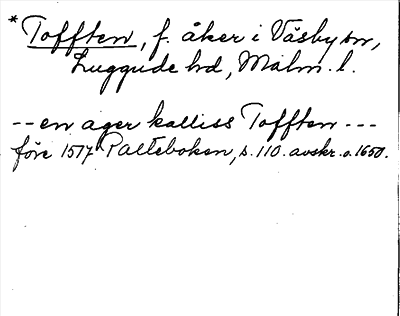 * Tofften, f. åker i Väsby sn,
Luggude hd, Malm. l.
-- en ager kalliss Tofften ---
före 1517 Palteboken, s. 110. avskr. o. 1650.